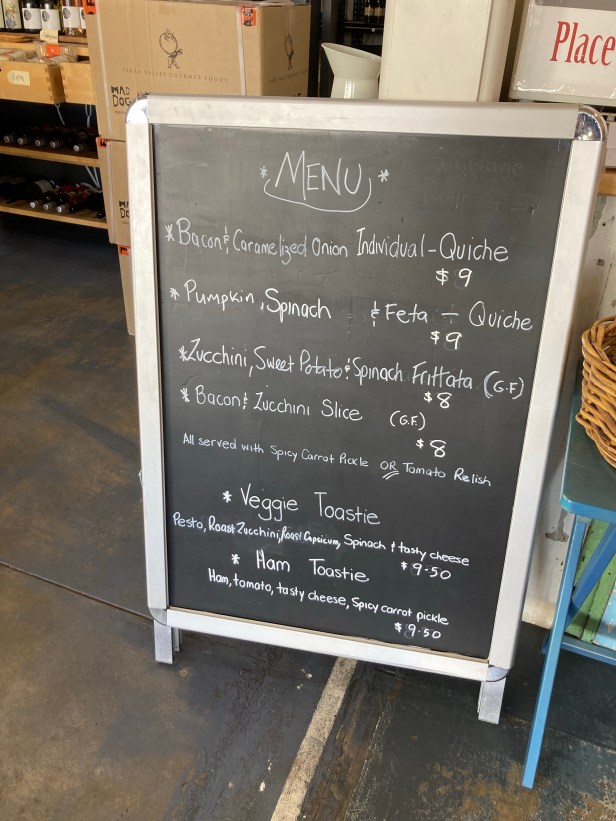 Place
YARRA VALLEY GOURMET FOODS
MAD
DOG
* MENU *
* Bacon & Caramelized Onion Individual - Quiche
$9
* Pumpkin, Spinach & Feta - Quiche
$9
* Zucchini, Sweet Potato & Spinach Frittata (G.F)
$8
* Bacon & Zucchini Slice (G.F.)
$8
All served with Spicy Carrot Pickle OR Tomato Relish
* Veggie Toastie
Pesto, Roast Zucchini, Roast Capsicum, Spinach & tasty cheese
$9.50
* Ham Toastie
Ham, tomato, tasty cheese, Spicy carrot pickle
$9.50